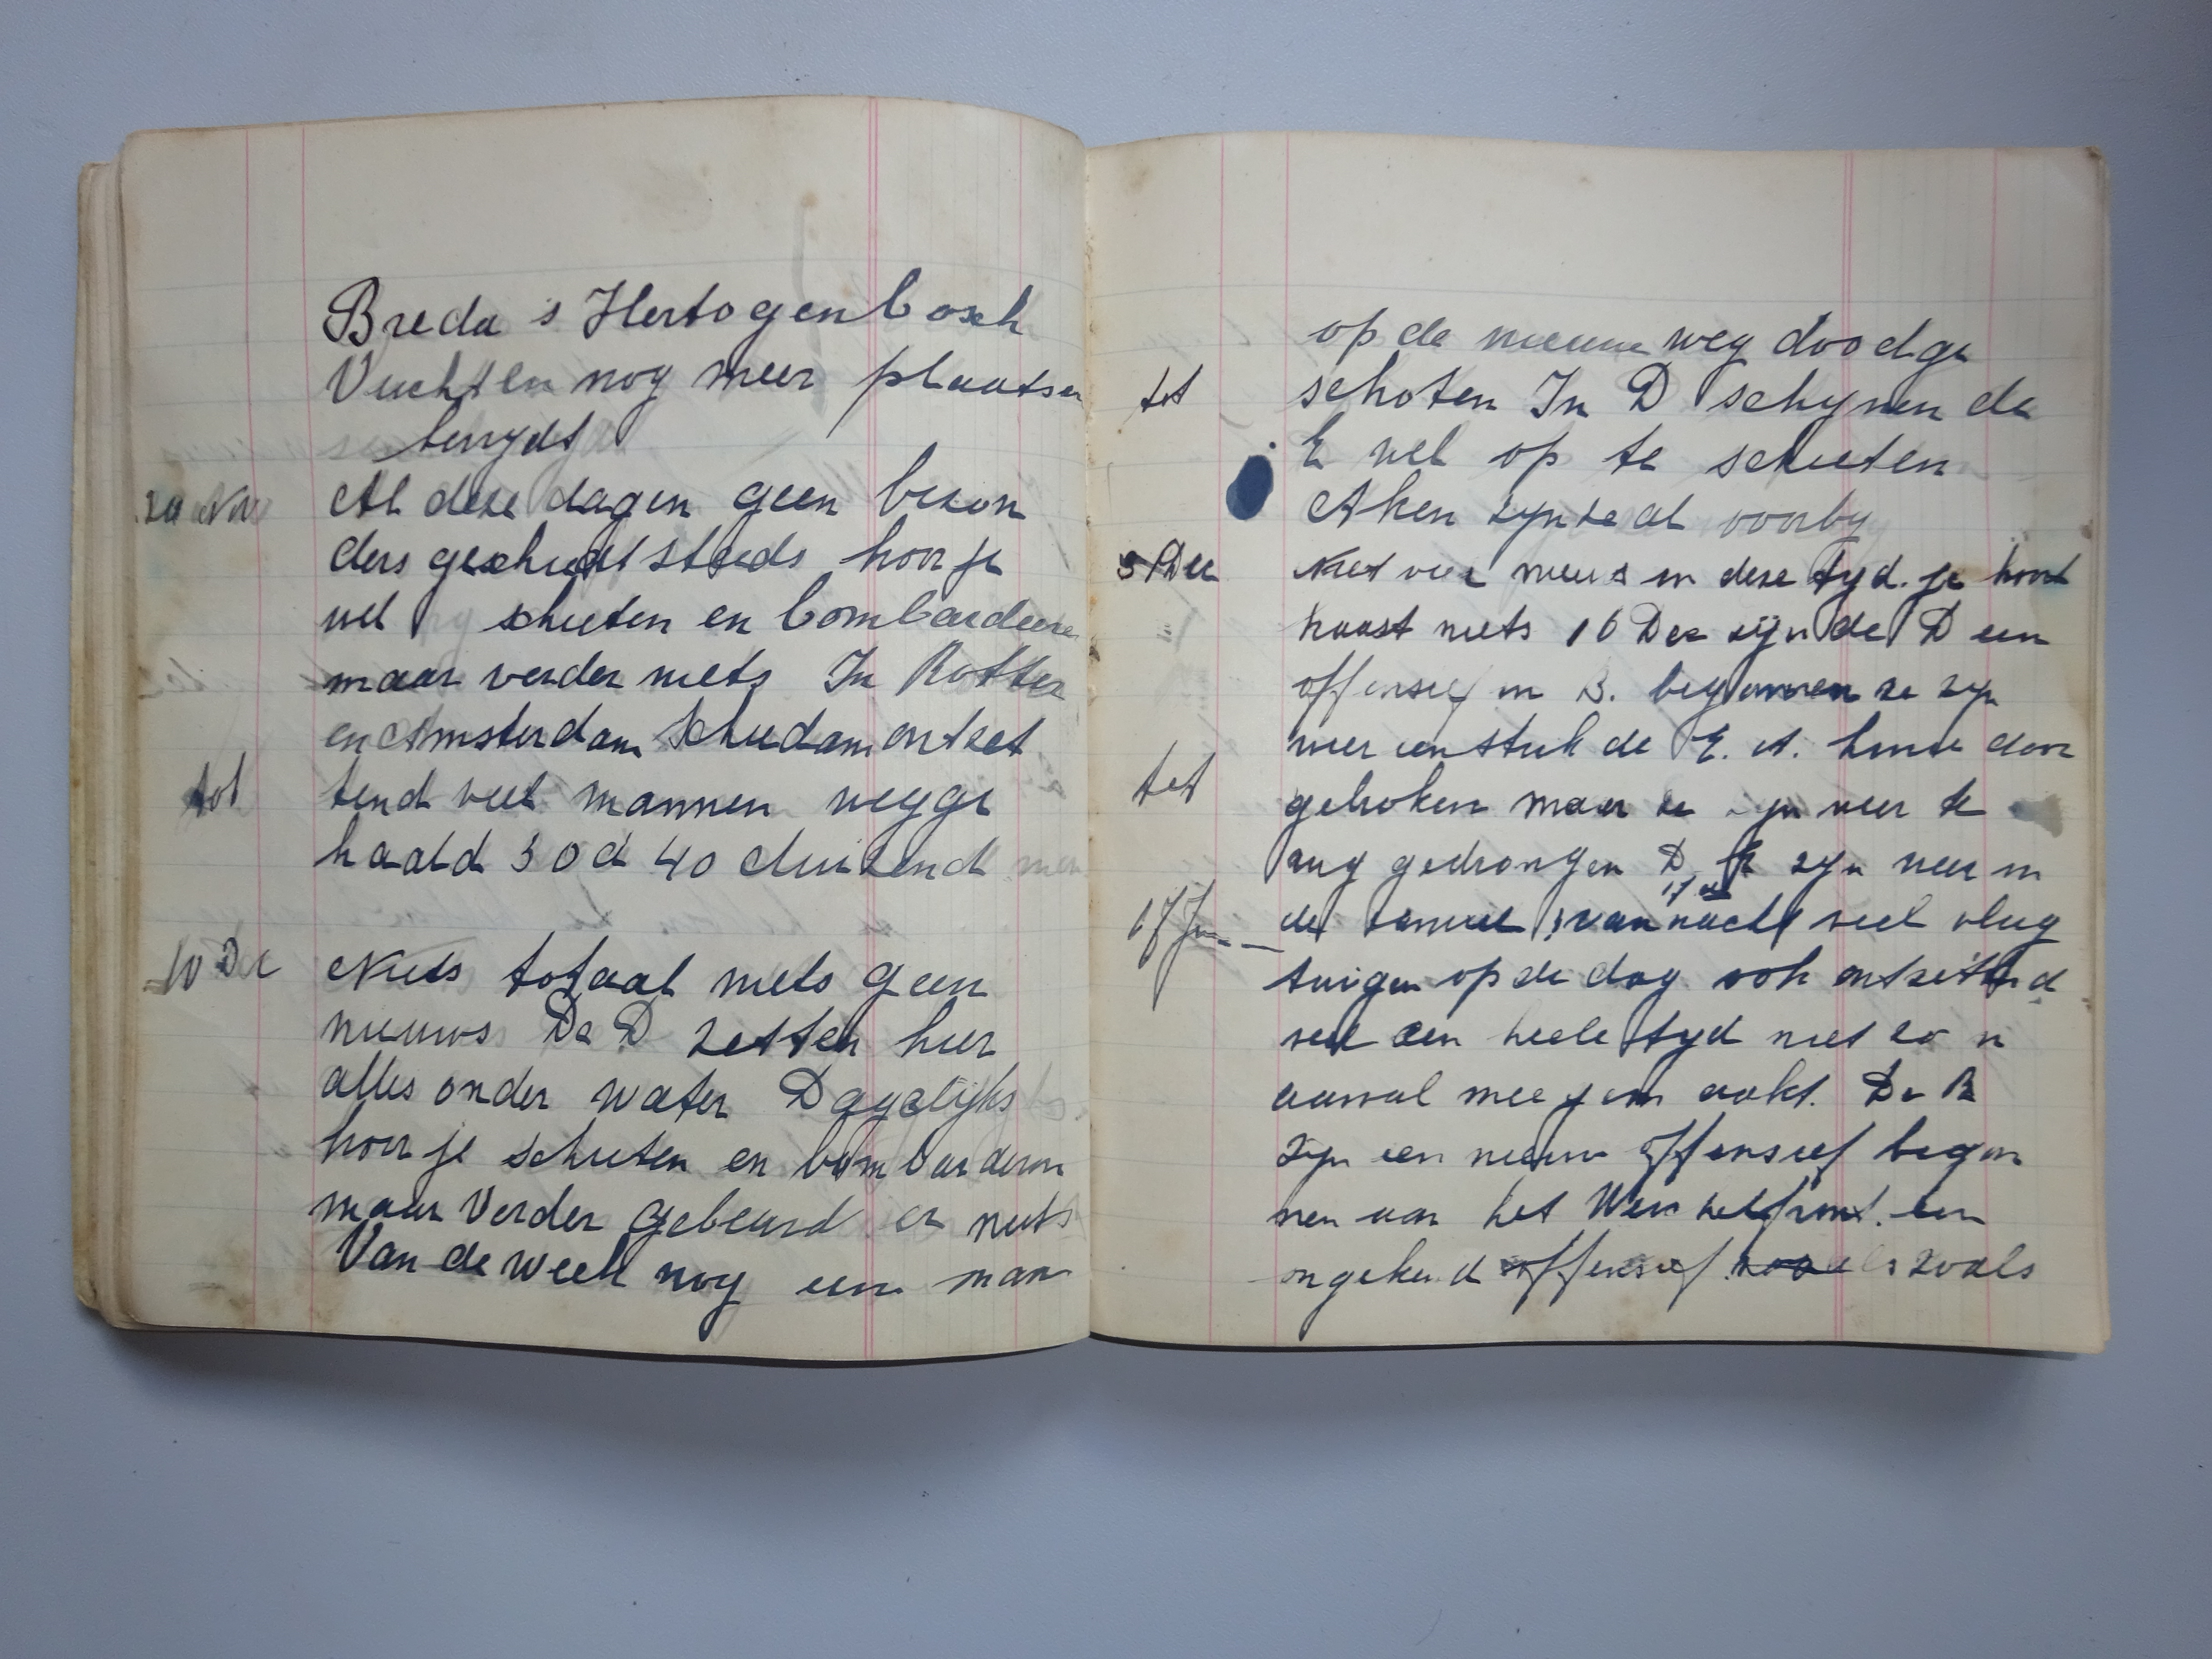 Breda s Hertogenbosch
Vuchten nog meer plaatsen
bevrydt
20 Nov Al deze dagen geen bezon
ders geschiedt steeds hoor je
wel schieten en bombardeere
maar verder niets In Rotter
en Amsterdam Schiedam ontzet
tot tend veel mannen wegge
haald 30 d 40 duizend men
10 Dec Niets totaal niets geen
nieuws De D zetten hier
alles onder water Dagelijks
hoor je schieten en bombarderen
maar Verder gebeurd er niets
Van de week nog een man
op de nieuwe weg doodge
tot schoten In D schynen de
E wel op te schieten
Aken zyn ze al voorby
Dec Niet veel nieuws in deze tyd. je hoort
haast niets 16 Dec zijn de D een
offensief in B. begonnen ze zyn
weer een stuk de E. A. linie door
tot gebroken maar ze zyn weer te
rug gedrongen D E zyn weer in
17 Jan de vannacht veel vlieg
tuigen op de dag ook ontzettend
veel een heele tyd niet zo n
aanval meegemaakt. De R
zyn een nieuw offensief begon
nen aan het front. een
ongekend offensief zoals